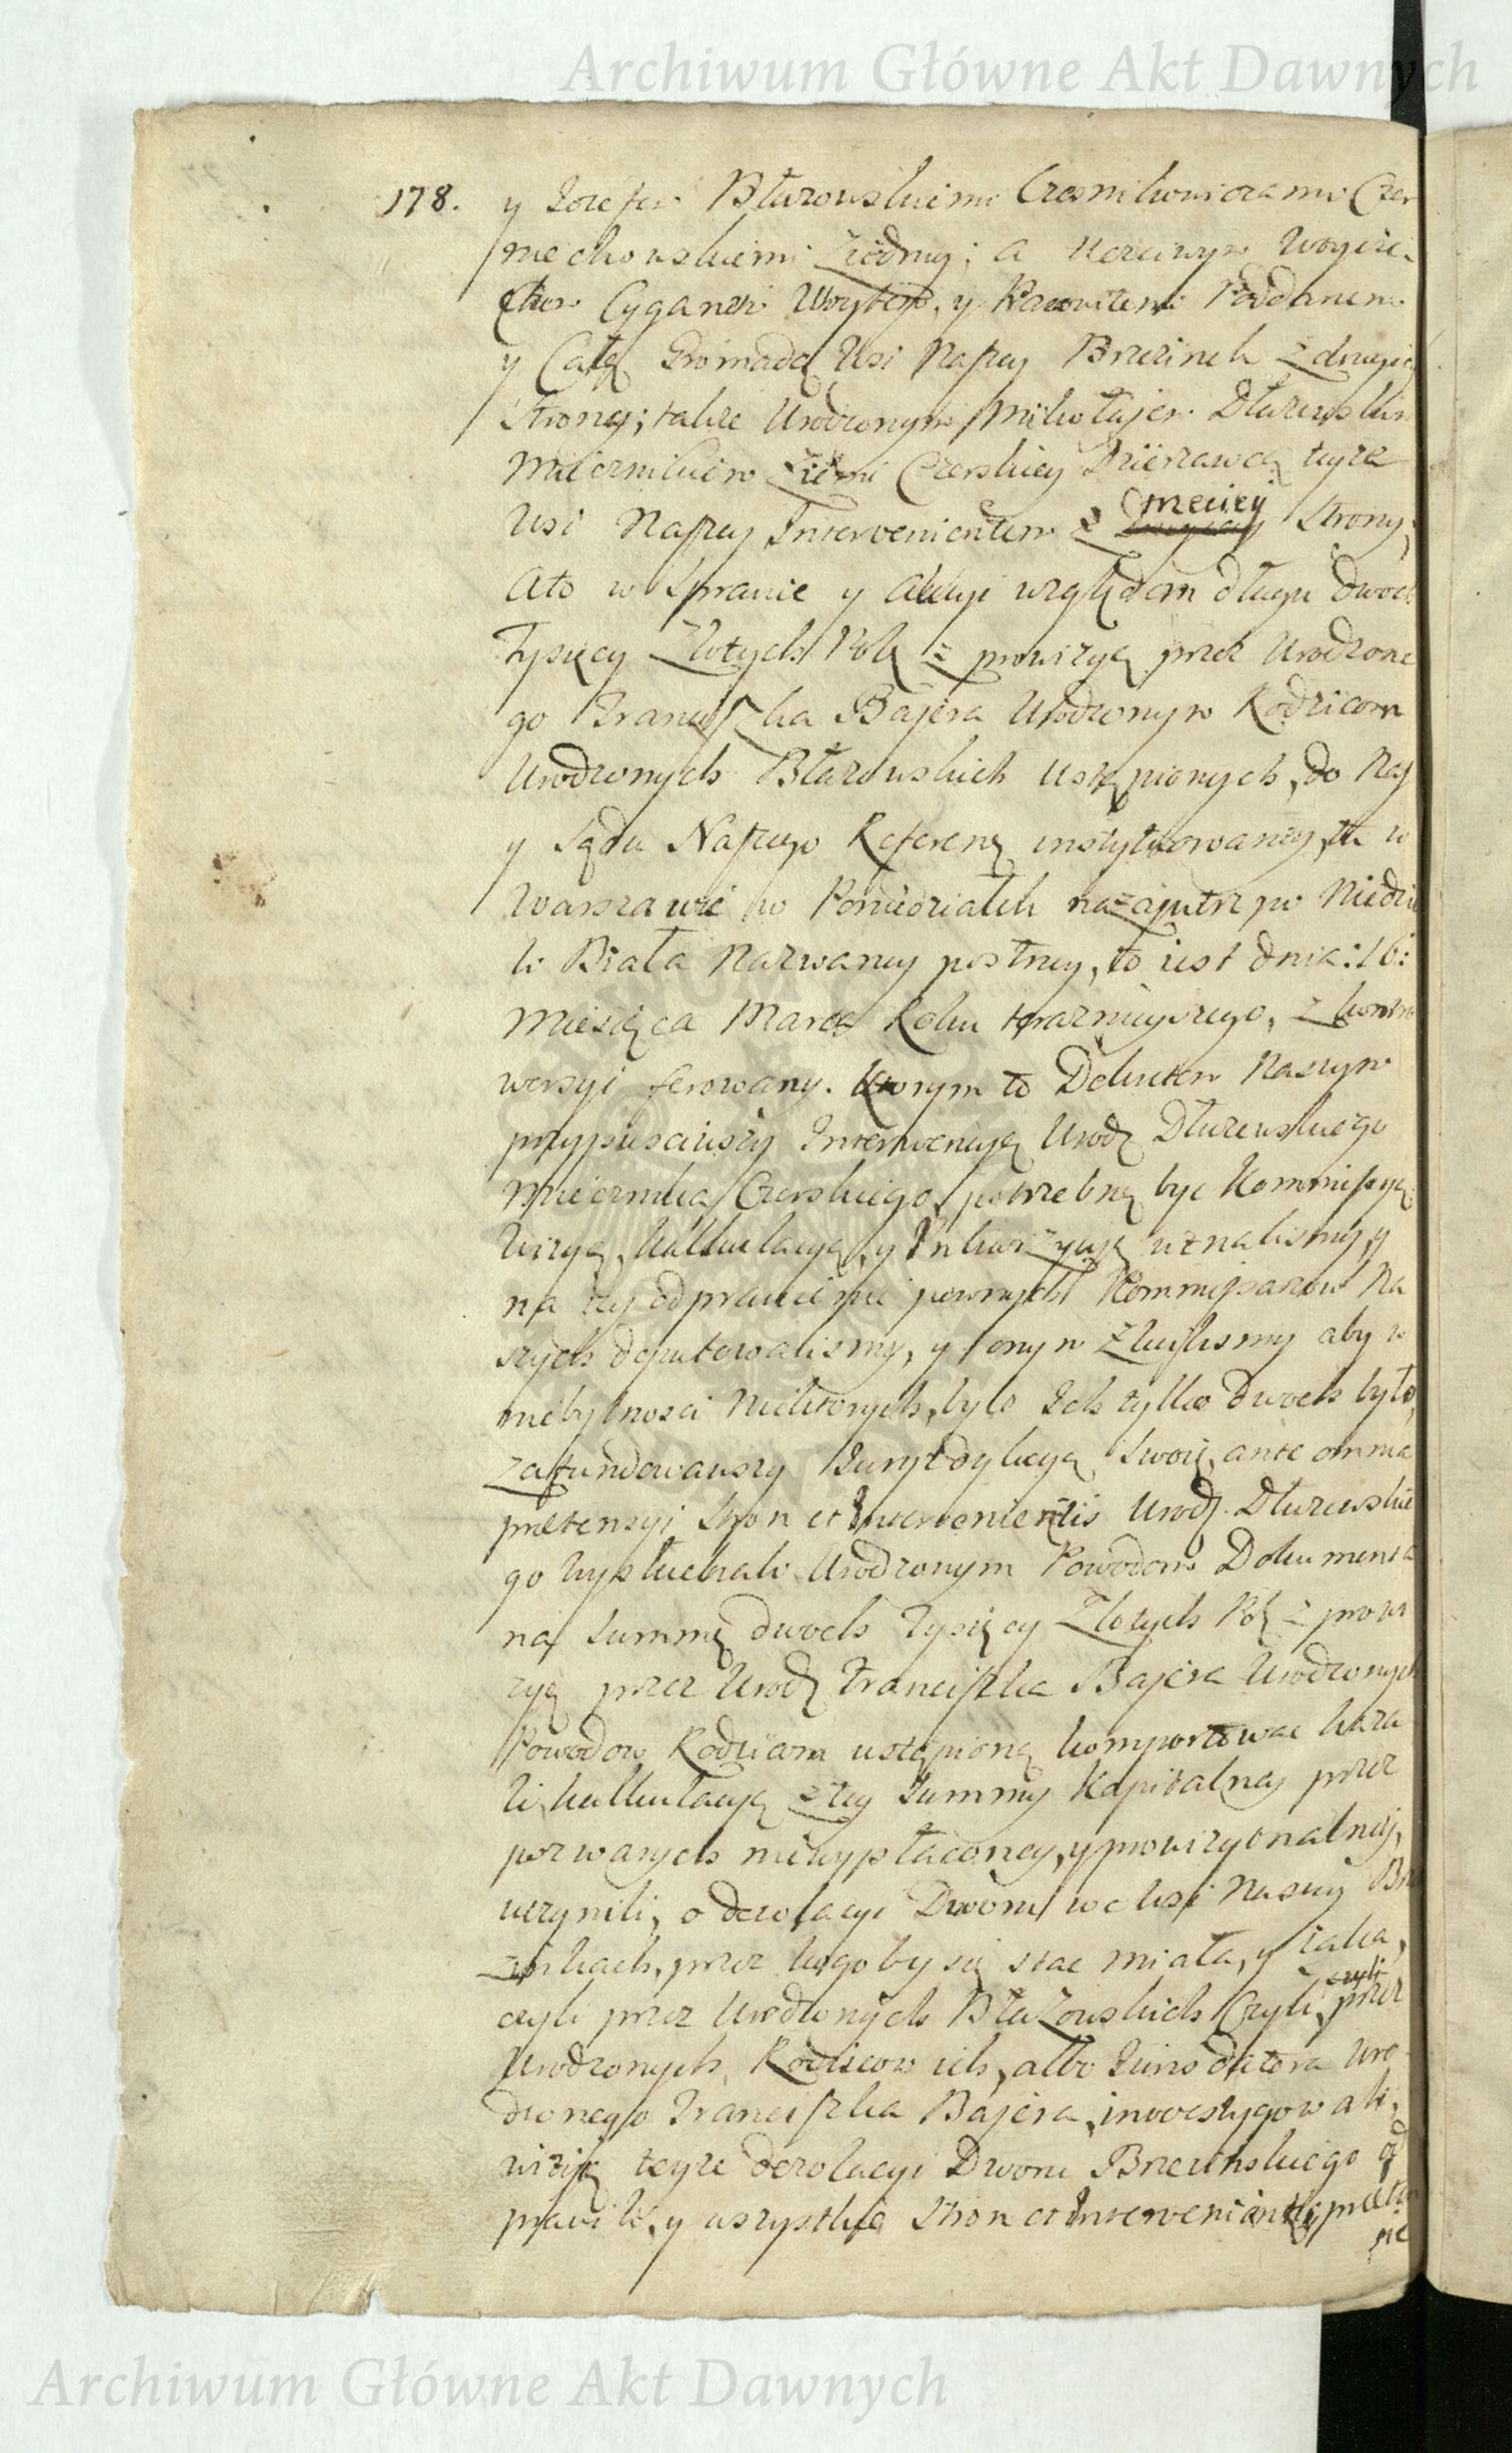 Archiwum Główne Akt Dawnych
178.
y Jozefem Błazowskiemi Czesnikowiczami Czer
niechowskiemi z iedney; a Uczciwym Woycie
chem Cyganem Woytem, y Poddanemi
y Całą Gromadą Wsi Naszey Brzezinek z drugiey
Strony; także Urodzonym Mikołajem Dłużewskim
Miecznikiem Ziemi Czerskiey Dzierzawcą teyze
Wsi Naszey Intervenientem z trzeciey Strony,
Ato w Sprawie y Akcyi względem długu dwoch
Tysięcy Złotych Pol: z prowizyą przez Urodzone
go Franciszka Bajera Urodzonym Rodzicom
Urodzonych Błazowskich ustąpionych, do Nas
y Sądu Naszego Referen: instytuowaney, tu w
Warszawie w Poniedziałek nazajutrz po Niedzie
li Biała nazwaney postney, to iest dnia: 16:
Miesiąca Marca Roku teraznieyszego, z kontro
wersyi ferowany. Ktorym to Dekretem Naszym
przypusciwszy Interwencyą Urodz Dłużewskiego
Miecznika Czerskiego, potrzebną byc Kommissyą
Wizyą, kalkulacyą, y Inkwizycyą uznalismy, y
na tey odprawienie pewnych Kommissarzow Na
szych deputowalismy, y onym zlecilismy aby w
niebytnosci niektorych, byle Ich tylko dwoch było,
zafundowawszy Jurysdykcyą swoię, ante omnia
pretensyi Stron et Intervenientis Urodz. Dłużewskie
go wysłuchali Urodzonym Powodom Dokumenta
na Summę dwoch Tysięcy Złotych Pol: z prowi
zyą przez Urodz Franciszka Bajera Urodzonych
Powodow Rodzicom ustąpioną komportowac kaza
li, kalkulacyą z tey Summy Kapitalney przez
pozwanych niewypłaconey, y prowizyonalney,
uczynili, o dezolacyi Dworu we Wsi Naszey Brze
zinkach, przez kogo by się stac miała, y iaka,
czyli przez Urodzonych Błazowskich czyli przez
Urodzonych Rodzicow ich, albo Juris datora Uro
dzonego Franciszka Bajera, inwestygowali,
wizyą teyze dezolacyi Dworu Brzezinskiego od
prawili, y wszystkie Stron et Intervenientis preten
sye
Archiwum Główne Akt Dawnych